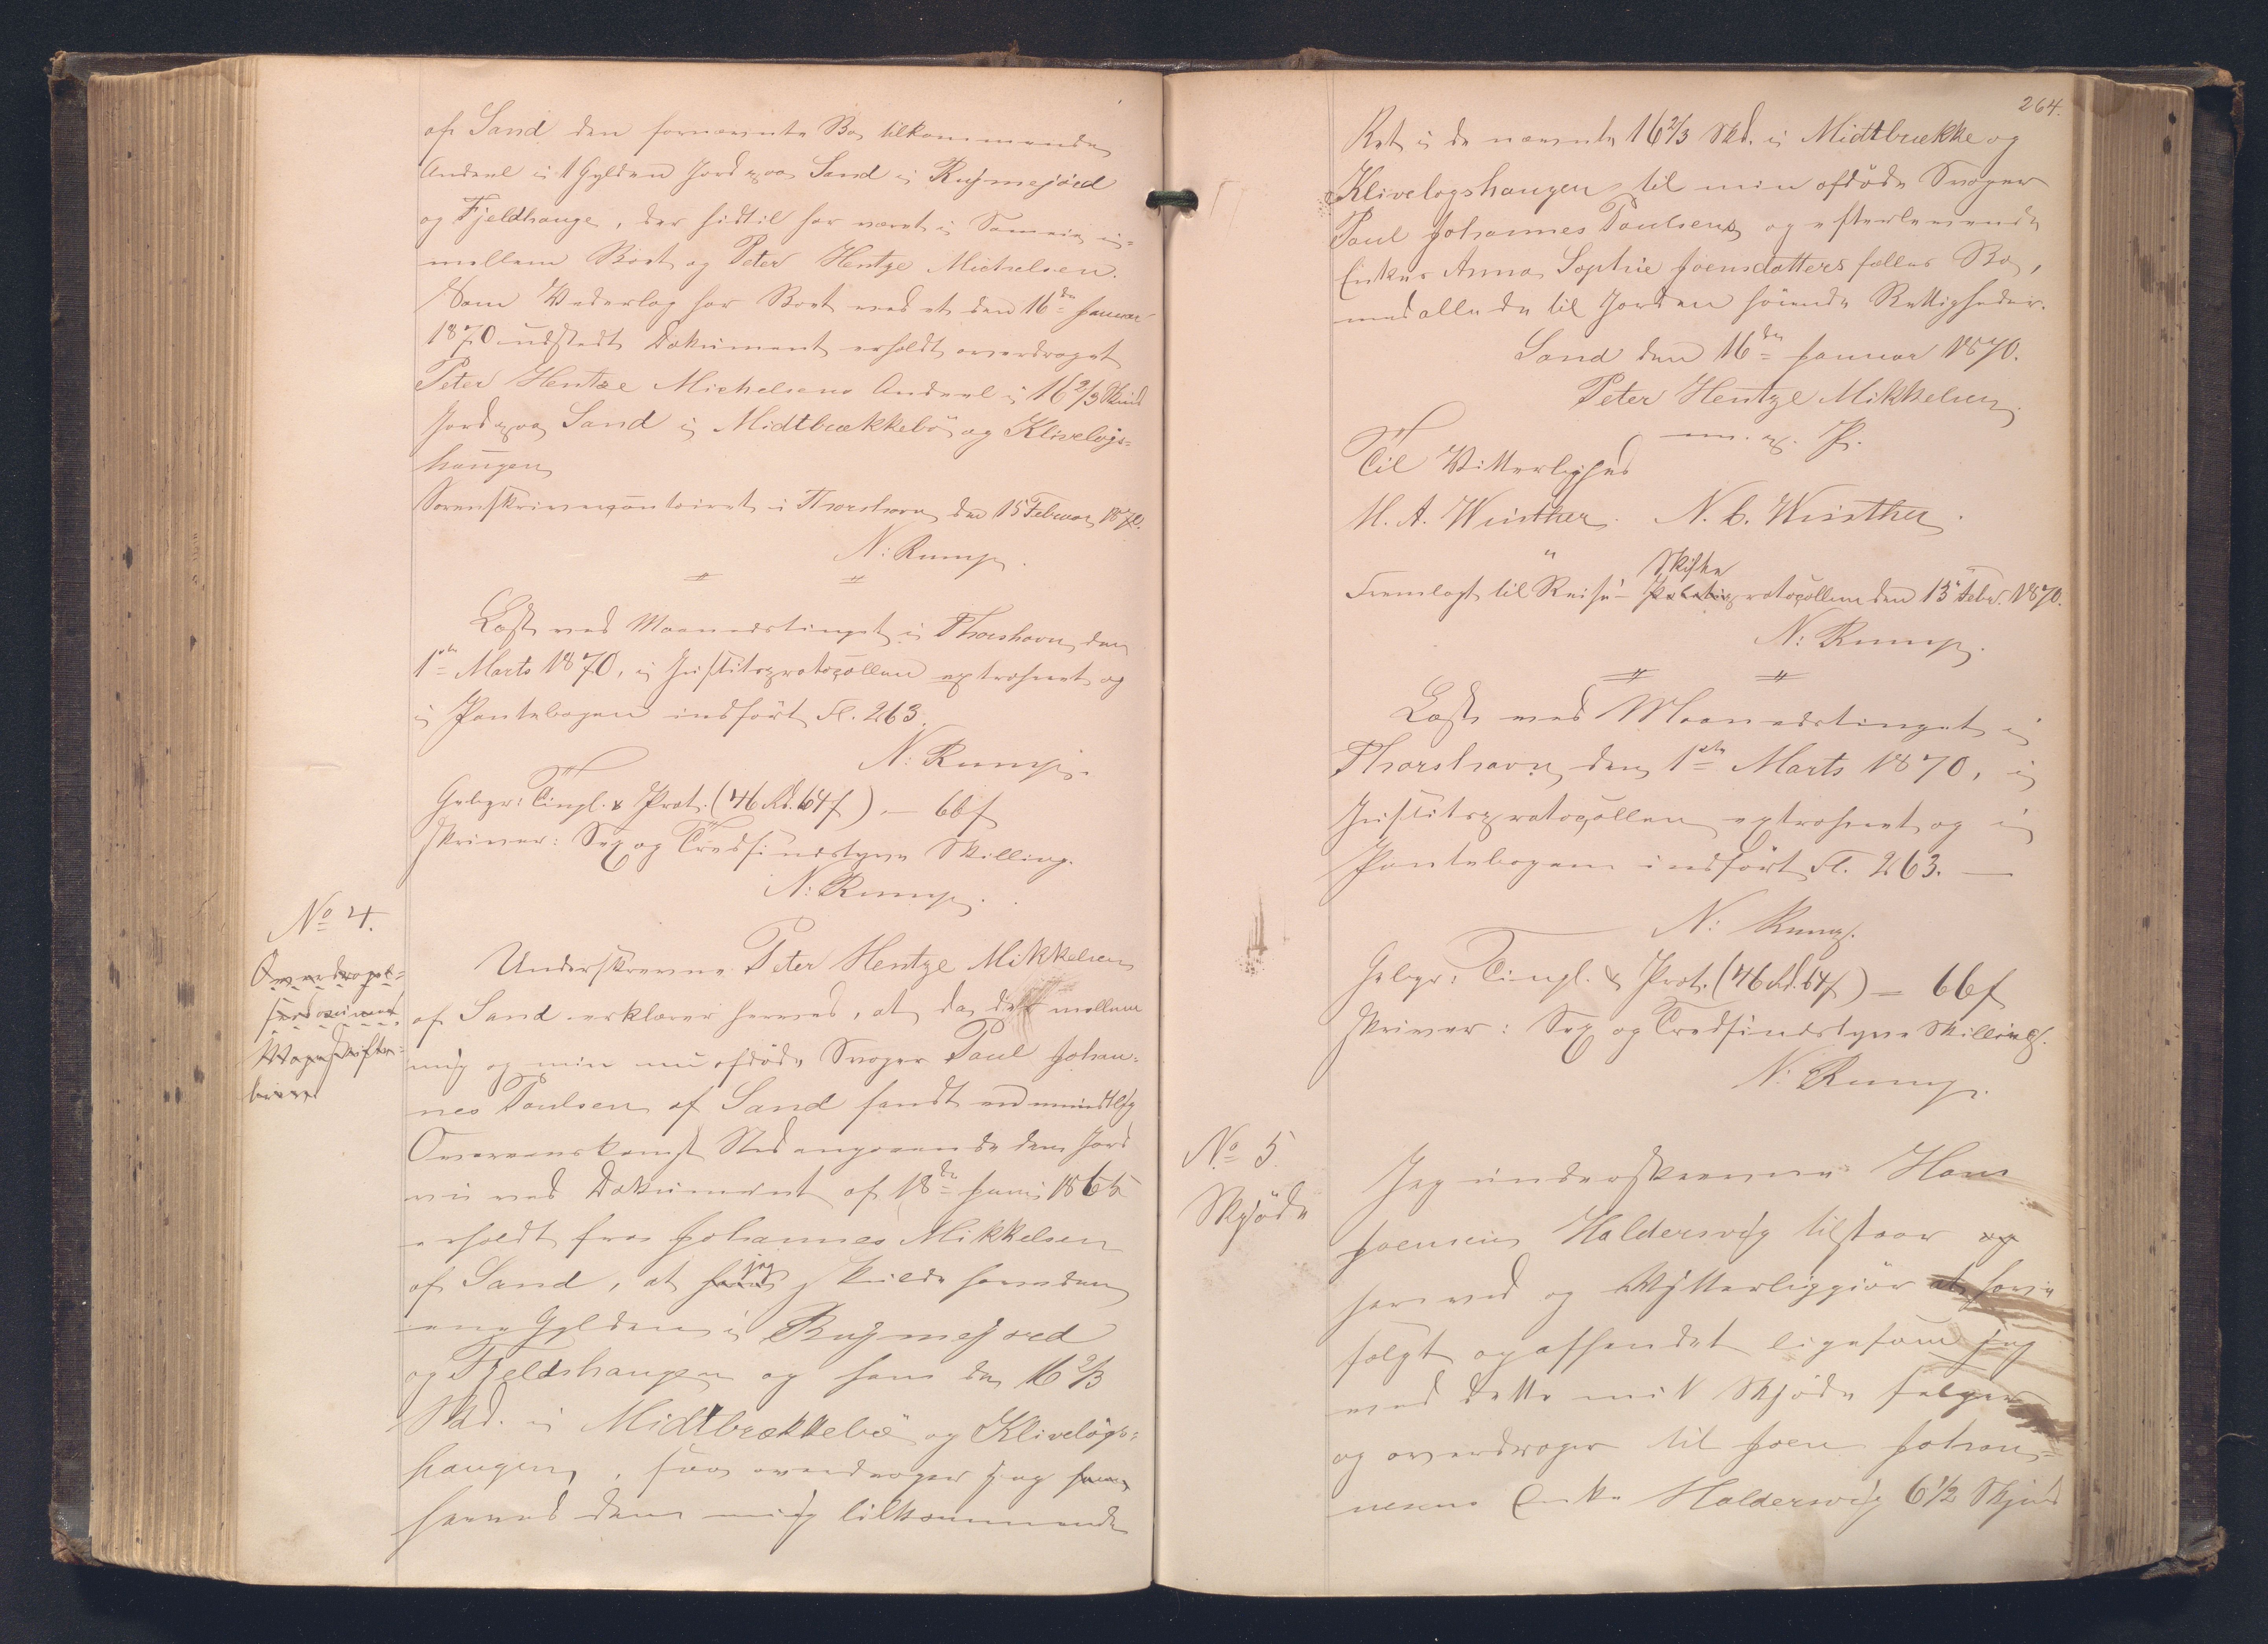 af Sand den fornævnte Bo tilkommende
Andeel i 1 Gylden Jord paa Sand i Rujmejörd
og Fjeldhauge, der hidtil har været i Sameie i=
mellem Boet og Peter Hentze Michelsen.
Som Vederlag har Boet ved et den 16de Januar
1870 udstedt Dokument erholdt overdraget
Peter Hentze Michelsens Andeel i 16 2/3 Skind
Jord paa Sand i Midtbrækkebö og Klivelogs=
haugen
Sorenskrivercontoiret i Thorshavn den 15 Februar 1870.
N: Rump.
Læst ved Maanedstinget i Thorshavn den
1ste Marts 1870, i Justitsprotocollen extraheret og
i Pantebogen indfört Fl. 263.
N: Rump.
Gebyr: Tingl. & Prot. (46 Rd. 64 f) — 66 f
skriver: Sex og Tredsindstyve Skilling.
N: Rump.
No 4.
Overdragel=
sesdocument
Underskrevne Peter Hentze Mikkelsen
af Sand erklærer herved, at da der mellem
mig og min nu afdöde Svoger Paul Johan=
nes Poulsen af Sand fandt en mundtlig
Overeenskomst Sted angaaende den Jord
vi ved Dokument af 18de Juni 1865
erholdt fra Johannes Mikkelsen
af Sand, at jeg skulde have den
ene Gylden i Rujmejord
og Fjeldshaugen og han de 16 2/3
Skd. i Midtbrækkebö og Klivelögs=
haugen, saa overdrager jeg
herved den mig tilkommende
264.
Ret i de nævnte 16 2/3 Skd. i Midtbrække og
Klivelogshaugen til min afdöde Svoger
Paul Johannes Poulsens og efterlevende
Enkes Anna Sophie Joensdatters fælles Bo,
med alle de til Jorden höiende Rettigheder.
Sand den 16de Januar 1870.
Peter Hentze Mikkelsen
m. p. P.
Til Vitterlighed
M. A. Winther. N. C. Winther.
Skifte
Fremlagt til Reise- protocollen den 15 Febr. 1870.
N: Rump.
Læst ved Maanedstinget i
Thorshavn den 1ste Marts 1870, i
Justitsprotocollen extraheret og i
Pantebogen indfört Fl. 263. —
N: Rump.
Gebyr: Tingl. & Prot. (46 Rd. 64 f) — 66 f
skriver: Sex og Tredsindstyve Skilling.
N: Rump.
No 5
Skjöde
Jeg underskrevne Hans
Joensen Haldersvig tilstaar og
herved og Vitterliggiör at have
solgt og afhændet ligesom jeg
med dette mit Skjöde sælger
og overdrager til Joen Johan=
nesens Enke Haldersvig 6 1/2 Skjind